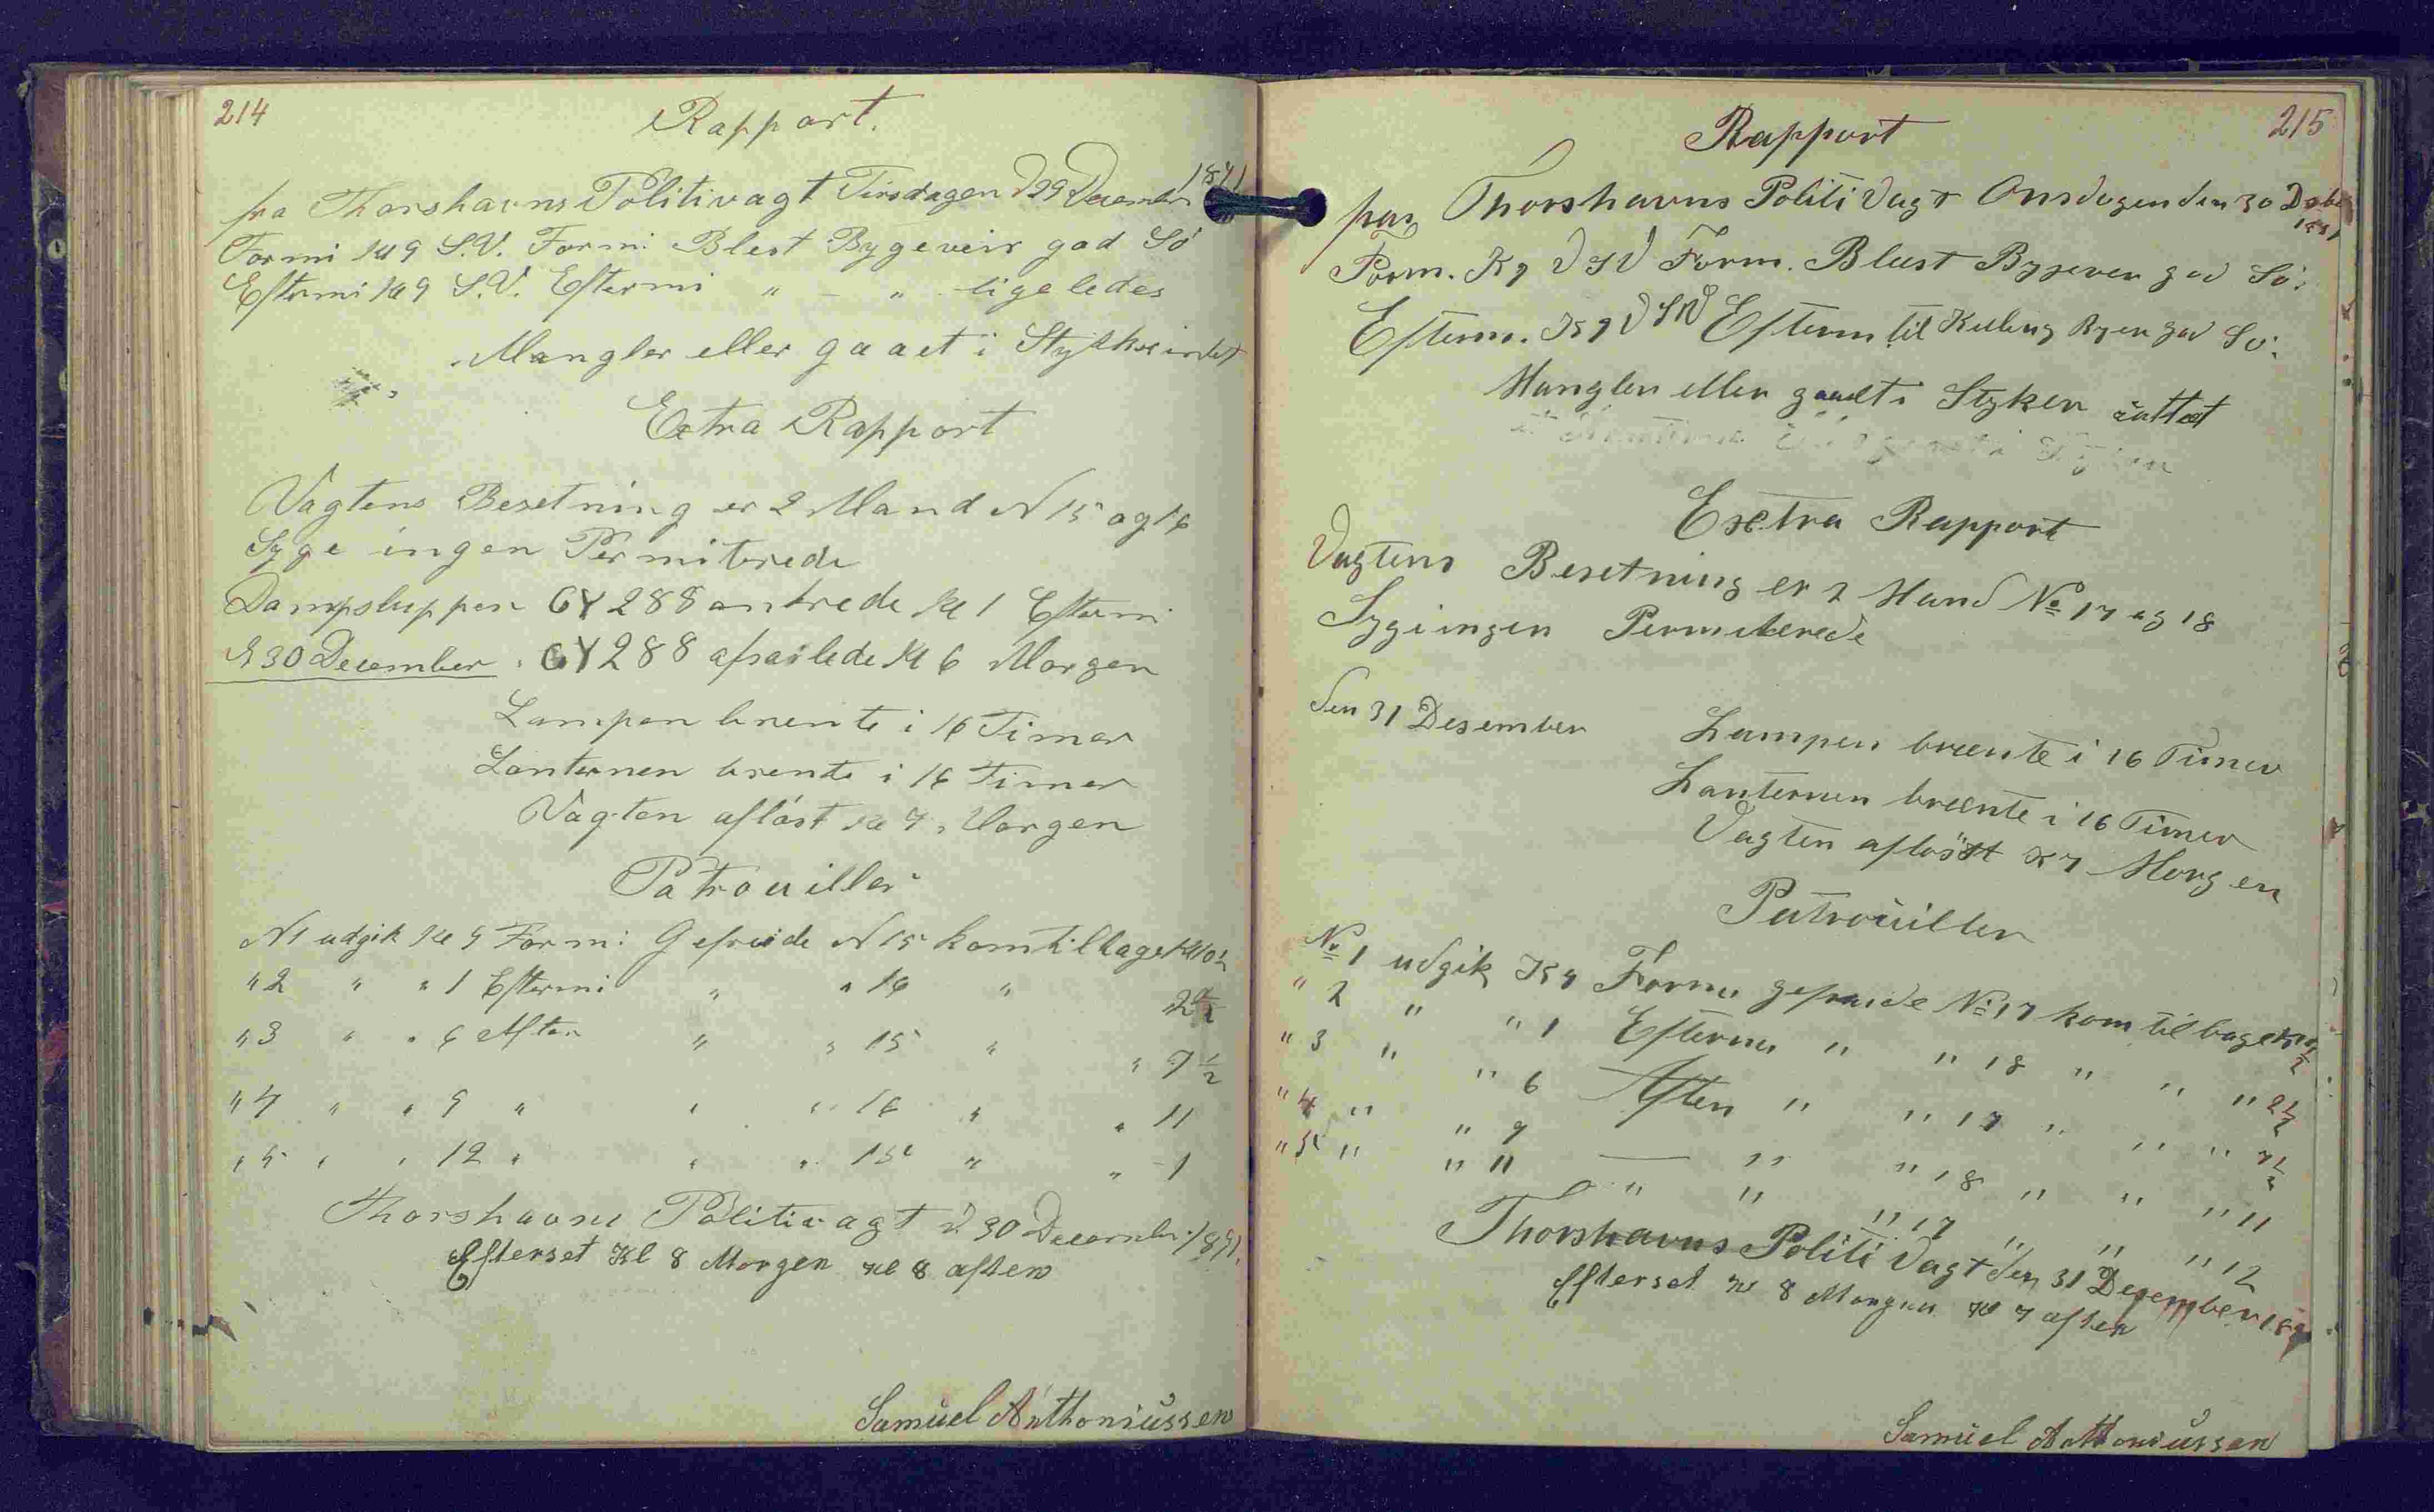 214
Rapport.
fra Thorshavns Politivagt Tirsdagen d 29 December 1891
Formi Kl 9 S.V. Formi Blest Bygeveir god Sö
Eftermi Kl 9 S.V. Eftermi " - " ligeledes
Mangler eller gaaet i Stykker intet
Extra Rapport
Vagtens Besetning er 2 Mand N 15 og 16
Syge ingen Permiterede
Dampsluppen GY 288 ankrede Kl 1 Eftermi
d 30 December. GY 288 afseilede Kl 6 Morgen
Lampen brente i 16 Timer
Lanternen brente i 16 Timer
Vagten aflöst Kl 7 Morgen
Patrouiller
N 1 udgik Kl 9 Formi: Gefreide N 15 kom tilbage Kl 10½
" 2 " " 1 Eftermi " " 16 " 2½
" 3 " " 6 Aften " " 15 " " 7½
" 4 " " 9 " " " 16 " " 11
" 5 " " 12 " " " 15 " " 1
Thorshavns Politivagt d 30 December 1891.
Efterset Kl 8 Morgen Kl 8 aften
Samuel Anthoniussen
215
Rapport
fra Thorshavns Politi Vagt Onsdagen den 30 Desbr 1891
Form. K 9 V S V Form. Blest Bygever god Sö:
Efterm. K 9 V S V Efterm til Kuling Byer god Sö:
Mangler eller gaaet i Styker inttet
Exstra Rapport
Vagtens Besetning er 2 Mand No 17 og 18
Syge ingen Permiterede
den 31 Desember Lampen brente i 16 Timer
Lanternen brente i 16 Timer
Vagten aflöst K 7 Morgen
Patrouiller
No 1 udgik K 9 Formi gefreide No 17 kom tilbage K 10½
" 2 " " 1 Eftermi " " 18 " " " 2½
" 3 " " 6 Aften " " 17 " " " 7½
" 4 " " 9 — " " 18 " " " 11
" 5 " " 11 " " " 17 " " " 12
Thorshavns Politi Vagt den 31 Desember 1891
Efterset Kl 8 Morgen Kl 7 aften
Samuel Anthoniussen